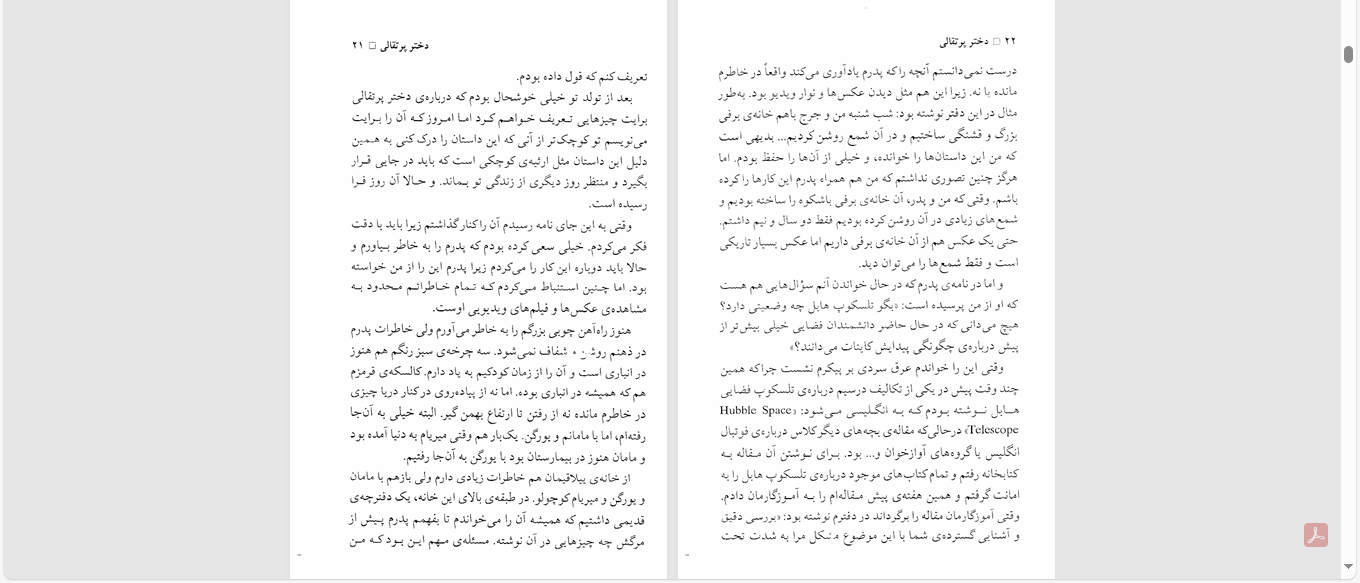 دختر پرتقالی □ ۲۱
تعریف کنم که قول داده بودم.
بعد از تولد تو خیلی خوشحال بودم که درباره‌ی دختر پرتقالی
برایت چیزهایی تعریف خواهم کرد اما امروز که آن را برایت
می‌نویسم تو کوچک‌تر از آنی که این داستان را درک کنی به همین
دلیل این داستان مثل ارثیه‌ی کوچکی است که باید در جایی قرار
بگیرد و منتظر روز دیگری از زندگی تو بماند. و حالا آن روز فرا
رسیده است.
وقتی به این جای نامه رسیدم آن را کنار گذاشتم زیرا باید با دقت
فکر می‌کردم. خیلی سعی کرده بودم که پدرم را به خاطر بیاورم و
حالا باید دوباره این کار را می‌کردم زیرا پدرم این را از من خواسته
بود. اما چنین استنباط می‌کردم که تمام خاطراتم محدود به
مشاهده‌ی عکس‌ها و فیلم‌های ویدیویی اوست.
هنوز راه‌آهن چوبی بزرگم را به خاطر می‌آورم ولی خاطرات پدرم
در ذهنم روشن و شفاف نمی‌شود. سه چرخه‌ی سبز رنگم هم هنوز
در انباری است و آن را از زمان کودکیم به یاد دارم. کالسکه‌ی قرمزم
هم که همیشه در انباری بوده. اما نه از پیاده‌روی در کنار دریا چیزی
در خاطرم مانده نه از رفتن تا ارتفاع بهمن گیر. البته خیلی به آن‌جا
رفته‌ام، اما با مامانم و یورگن. یک‌بار هم وقتی میریام به دنیا آمده بود
و مامان هنوز در بیمارستان بود با یورگن به آن‌جا رفتیم.
از خانه‌ی ییلاقیمان هم خاطرات زیادی دارم ولی بازهم با مامان
و یورگن و میریام کوچولو. در طبقه‌ی بالای این خانه، یک دفترچه‌ی
قدیمی داشتیم که همیشه آن را می‌خواندم تا بفهمم پدرم پیش از
مرگش چه چیزهایی در آن نوشته. مسئله‌ی مهم این بود که من
۲۲ □ دختر پرتقالی
درست نمی‌دانستم آنچه را که پدرم یادآوری می‌کند واقعاً در خاطرم
مانده یا نه. زیرا این هم مثل دیدن عکس‌ها و نوار ویدیو بود. به‌طور
مثال در این دفتر نوشته بود: شب شنبه من و جرج باهم خانه‌ی برفی
بزرگ و قشنگی ساختیم و در آن شمع روشن کردیم... بدیهی است
که من این داستان‌ها را خوانده، و خیلی از آن‌ها را حفظ بودم. اما
هرگز چنین تصوری نداشتم که من هم همراه پدرم این کارها را کرده
باشم. وقتی که من و پدر، آن خانه‌ی برفی باشکوه را ساخته بودیم و
شمع‌های زیادی در آن روشن کرده بودیم فقط دو سال و نیم داشتم.
حتی یک عکس هم از آن خانه‌ی برفی داریم اما عکس بسیار تاریکی
است و فقط شمع‌ها را می‌توان دید.
و اما در نامه‌ی پدرم که در حال خواندن آنم سؤال‌هایی هم هست
که او از من پرسیده است: «بگو تلسکوپ هابل چه وضعیتی دارد؟
هیچ می‌دانی که در حال حاضر دانشمندان فضایی خیلی بیش‌تر از
پیش درباره‌ی چگونگی پیدایش کاینات می‌دانند؟»
وقتی این را خواندم عرق سردی بر پیکرم نشست چراکه همین
چند وقت پیش در یکی از تکالیف درسیم درباره‌ی تلسکوپ فضایی
هابل نوشته بودم که به انگلیسی می‌شود: «Hubble Space
Telescope» درحالی‌که مقاله‌ی بچه‌های دیگر کلاس درباره‌ی فوتبال
انگلیس یا گروه‌های آوازخوان و... بود. برای نوشتن آن مقاله به
کتابخانه رفتم و تمام کتاب‌های موجود درباره‌ی تلسکوپ هابل را به
امانت گرفتم و همین هفته‌ی پیش مقاله‌ام را به آموزگارمان دادم.
وقتی آموزگارمان مقاله را برگرداند در دفترم نوشته بود: «بررسی دقیق
و آشنایی گسترده‌ی شما با این موضوع مشکل مرا به شدت تحت